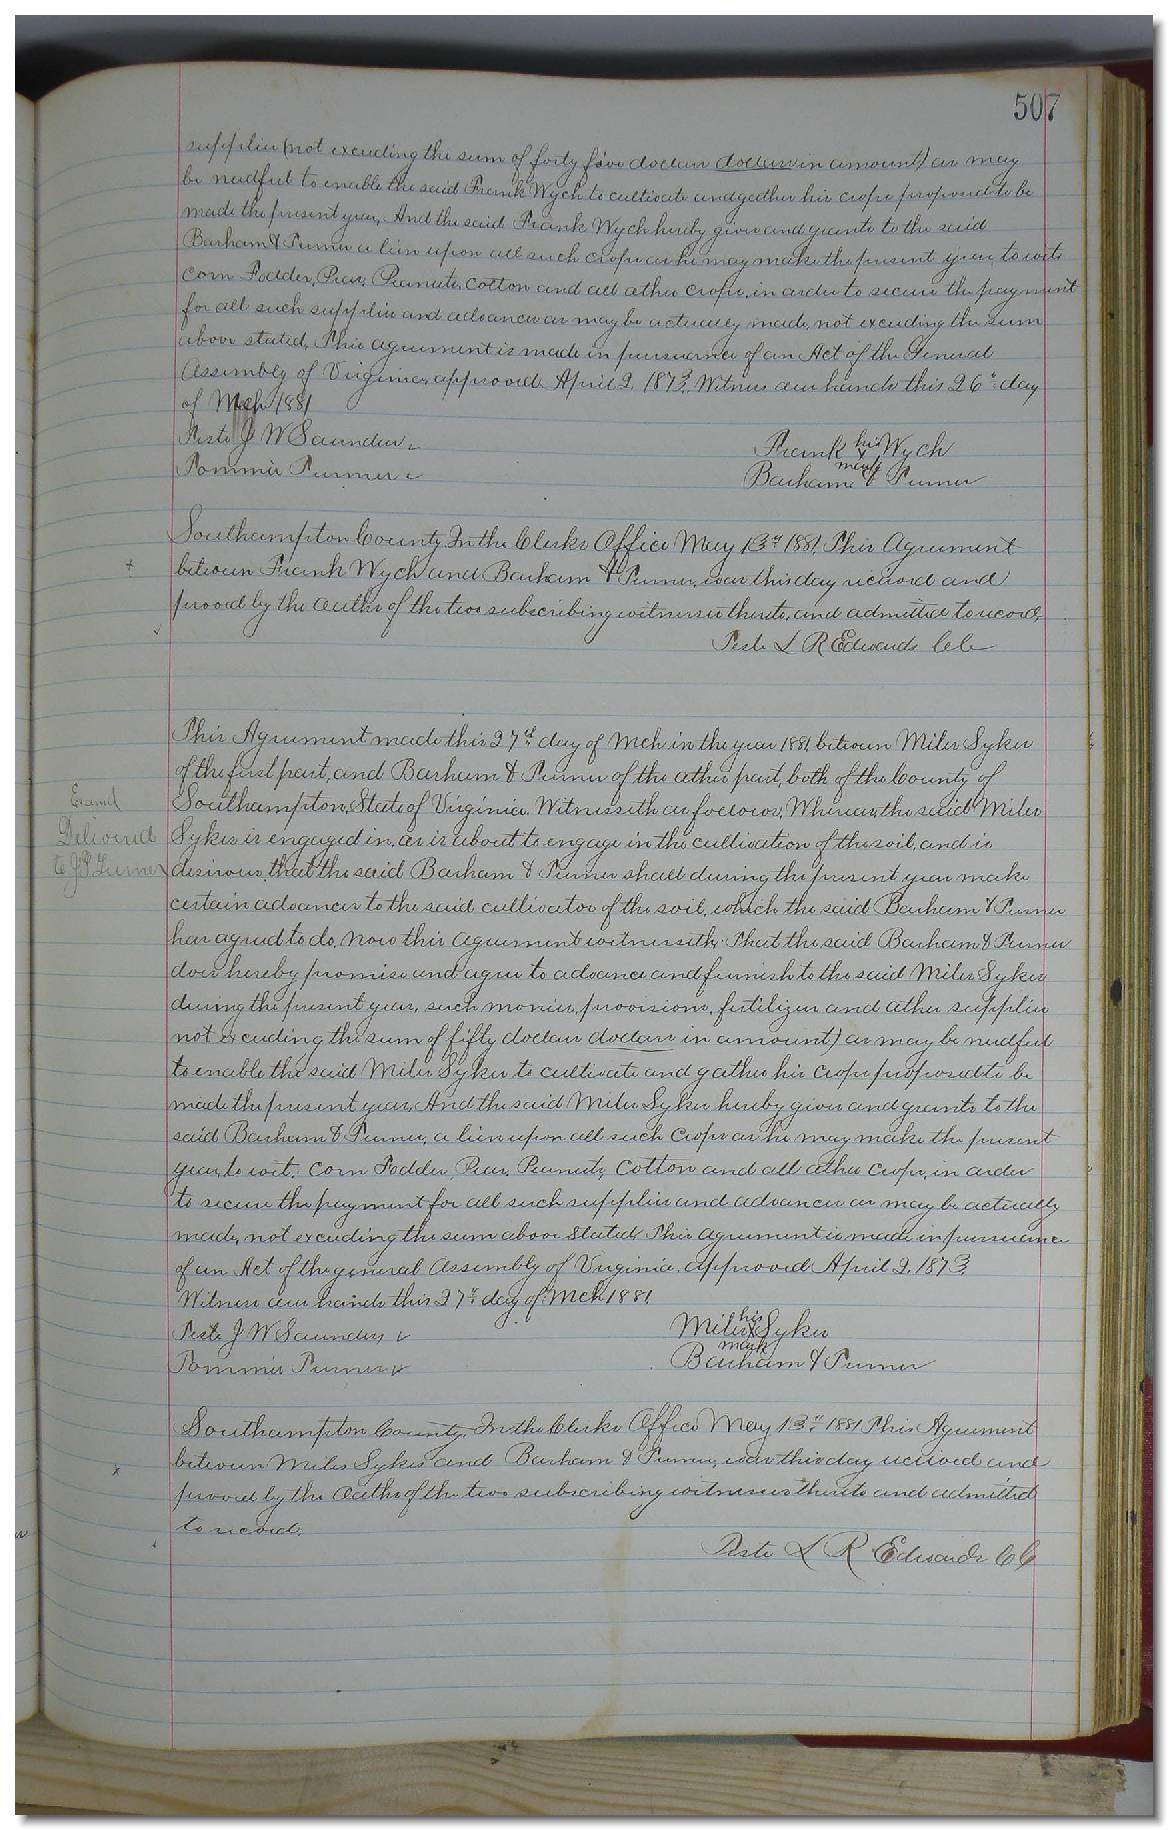 507
supplies (not exceeding the sum of forty five dollars dollars in amount) as may
be needful to enable the said Frank Wych to cultivate and gather his crops proposed to be
made the present year, And the said Frank Wych hereby gives and grants to the said
Barham & Turner a lien upon all such crops as he may make the present year to wit:
Corn Fodder, Peas, Peanuts, Cotton and all other crops, in order to secure the payment
for all such supplies and advances as may be actually made, not exceeding the sum
above stated, This agreement is made in pursuance of an Act of the General
Assembly of Virginia, approved April 2, 1873, Witness our hands this 26th day
of Mch 1881
Teste J W Saunders
Tommie Turner
Frank his Wych
x
mark
Barham & Turner
Southampton County, In the Clerks Office May 13th 1881, This Agreement
between Frank Wych and Barham & Turner, was this day received and
proved by the oaths of the two subscribing witnesses thereto, and admitted to record,
Teste L R Edwards CC
This Agreement made this 27th day of Mch in the year 1881, between Miles Sykes
of the first part, and Barham & Turner of the other part, both of the County of
Southampton, State of Virginia. Witnesseth as follows; Whereas, the said Miles
Sykes is engaged in, or is about to engage in the cultivation of the soil, and is
desirous, that the said Barham & Turner shall during the present year make
certain advances to the said cultivator of the soil, which the said Barham & Turner
has agreed to do, Now this agreement witnesseth, That the said Barham & Turner
does hereby promise and agree to advance and furnish to the said Miles Sykes
during the present year, such monies, provisions, fertilizers and other supplies
not exceeding the sum of fifty dollars dollars in amount) as may be needful
to enable the said Miles Sykes to cultivate and gather his crops proposed to be
made the present year, And the said Miles Sykes hereby gives and grants to the
said Barham & Turner, a lien upon all such crops as he may make the present
year, to wit. Corn Fodder, Peas, Peanuts, Cotton and all other crops, in order
to secure the payment for all such supplies and advances as may be actually
made, not exceeding the sum above stated This agreement is made in pursuance
of an Act of the general Assembly of Virginia, approved April 2, 1873,
Witness our hands this 27th day of Mch 1881
Teste J W Saunders
Tommie Turner
Miles his Sykes
x
mark
Barham & Turner
Examd
Delivered
to J. P. Turner
Southampton County, In the Clerks Office May 13th 1881 This Agreement
between Miles Sykes and Barham & Turner, was this day received and
proved by the Oaths of the two subscribing witnesses thereto and admitted
to record.
Teste L R Edwards CC